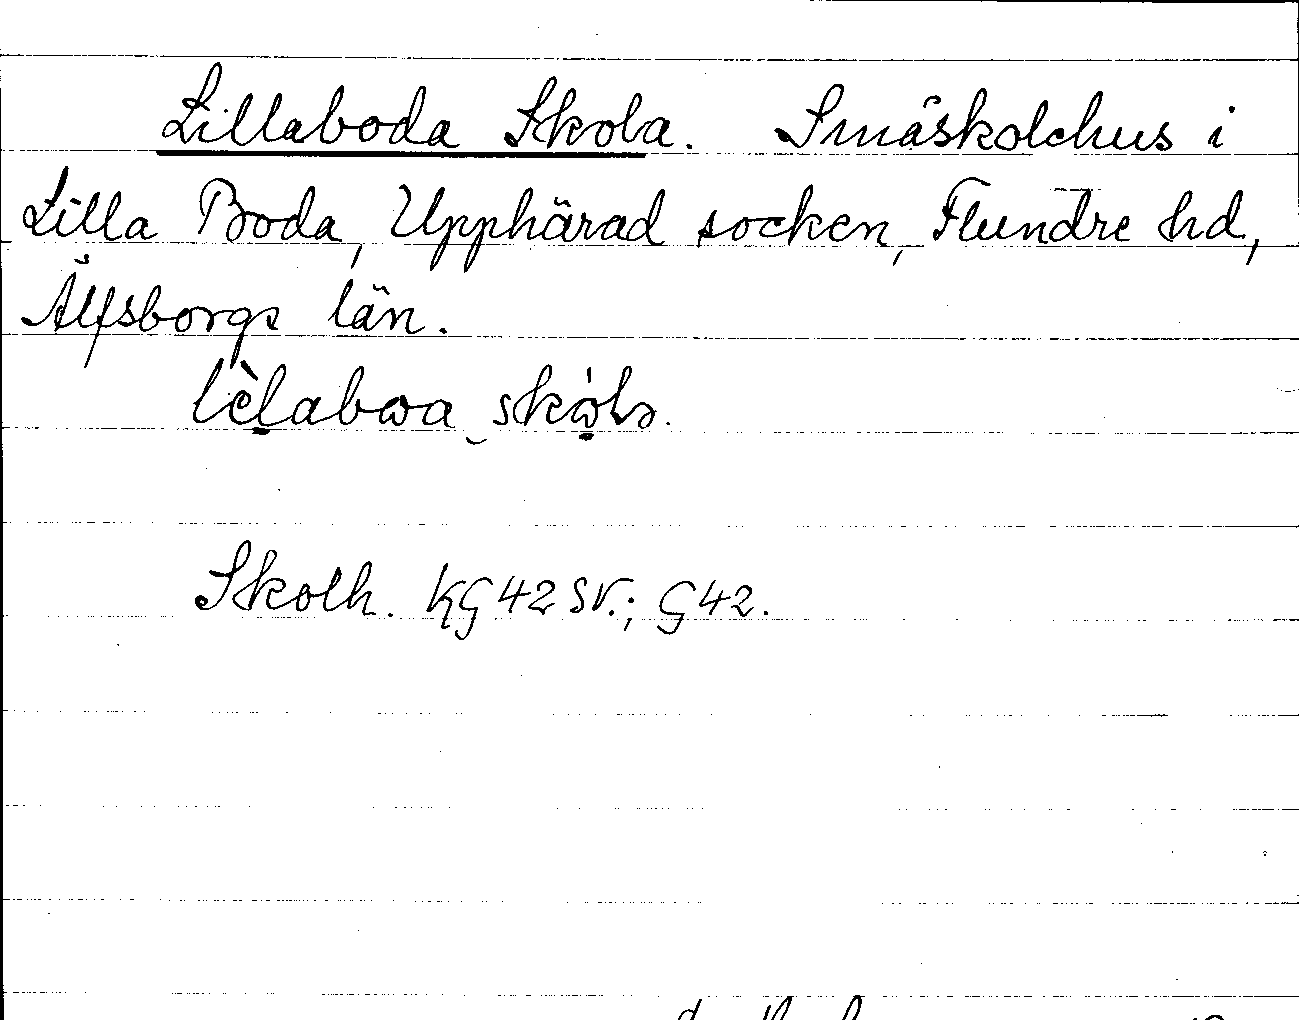 Lillaboda Skola. Småskolehus i
Lilla Boda, Upphärad socken, Flundre hd,
Älfsborgs län.
Skolh. KG 42 SV.; G 42.